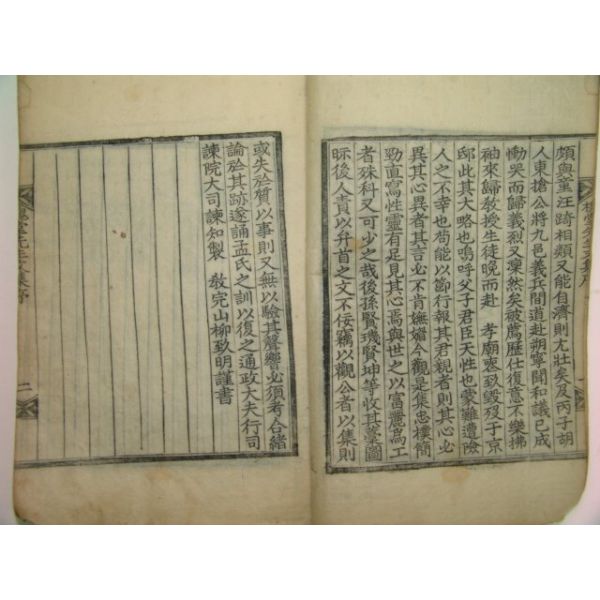 頗與童汪踦相類又能自濟則尤壯矣及丙子胡
人東搶公將九邑義兵間道赴朔寧聞和議已成
慟哭而歸義烈又凜然矣被薦歷仕復意不樂拂
袖來歸敎授生徒晚而赴 孝廟喪致毀歿于京
邸此其大略也嗚呼父子君臣天性也蒙難遭險
人之不幸也苟能以節行報其君親者則其心必
異其心異者其言必不肯娬媚今觀是集忠樸簡
勁直寫性靈有足見其心焉與世之以富麗爲工
者殊科又可少之哉後孫賢璣賢坤等收其藁圖
眎後人責以弁首之文不佞竊以觀公者以集則
或失於質以事則又無以驗其聲響必須考合緖
論於其跡遂誦孟氏之訓以復之通政大夫行司
諫院大司諫知製 敎完山柳致明謹書
二